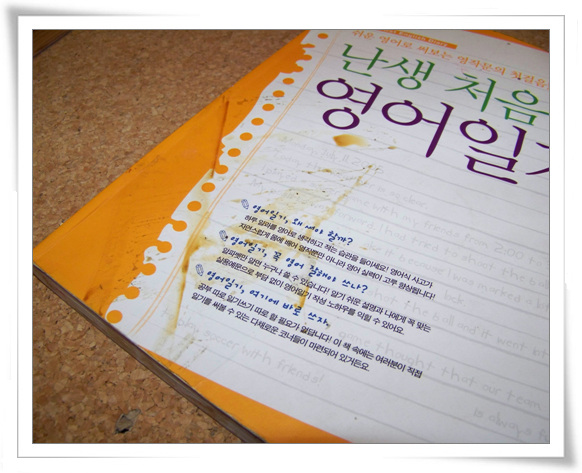 English Diary
쉬운 영어로 써보는 영작문의 첫걸음
난생 처음
영어일기
영어일기, 왜 써야 할까?
하루 일과를 영어로 생각하고 적는 습관을 들이세요! 영어식 사고가
자연스럽게 몸에 배어 영작뿐만 아니라 영어 실력이 고루 향상됩니다!
영어일기, 꼭 영어 잘해야 쓰나?
알파벳만 알면 누구나 쓸 수 있습니다! 알기 쉬운 설명과 나에게 꼭 맞는
실용예문으로 부담 없이 영어일기 작성 노하우를 익힐 수 있어요.
영어일기, 여기에 바로 쓰자.
공부 따로 일기쓰기 따로 할 필요가 없답니다! 이 책 속에는 여러분이 직접
일기를 써볼 수 있는 다채로운 코너들이 마련되어 있거든요.
thought that our team
is always
soccer with friends!